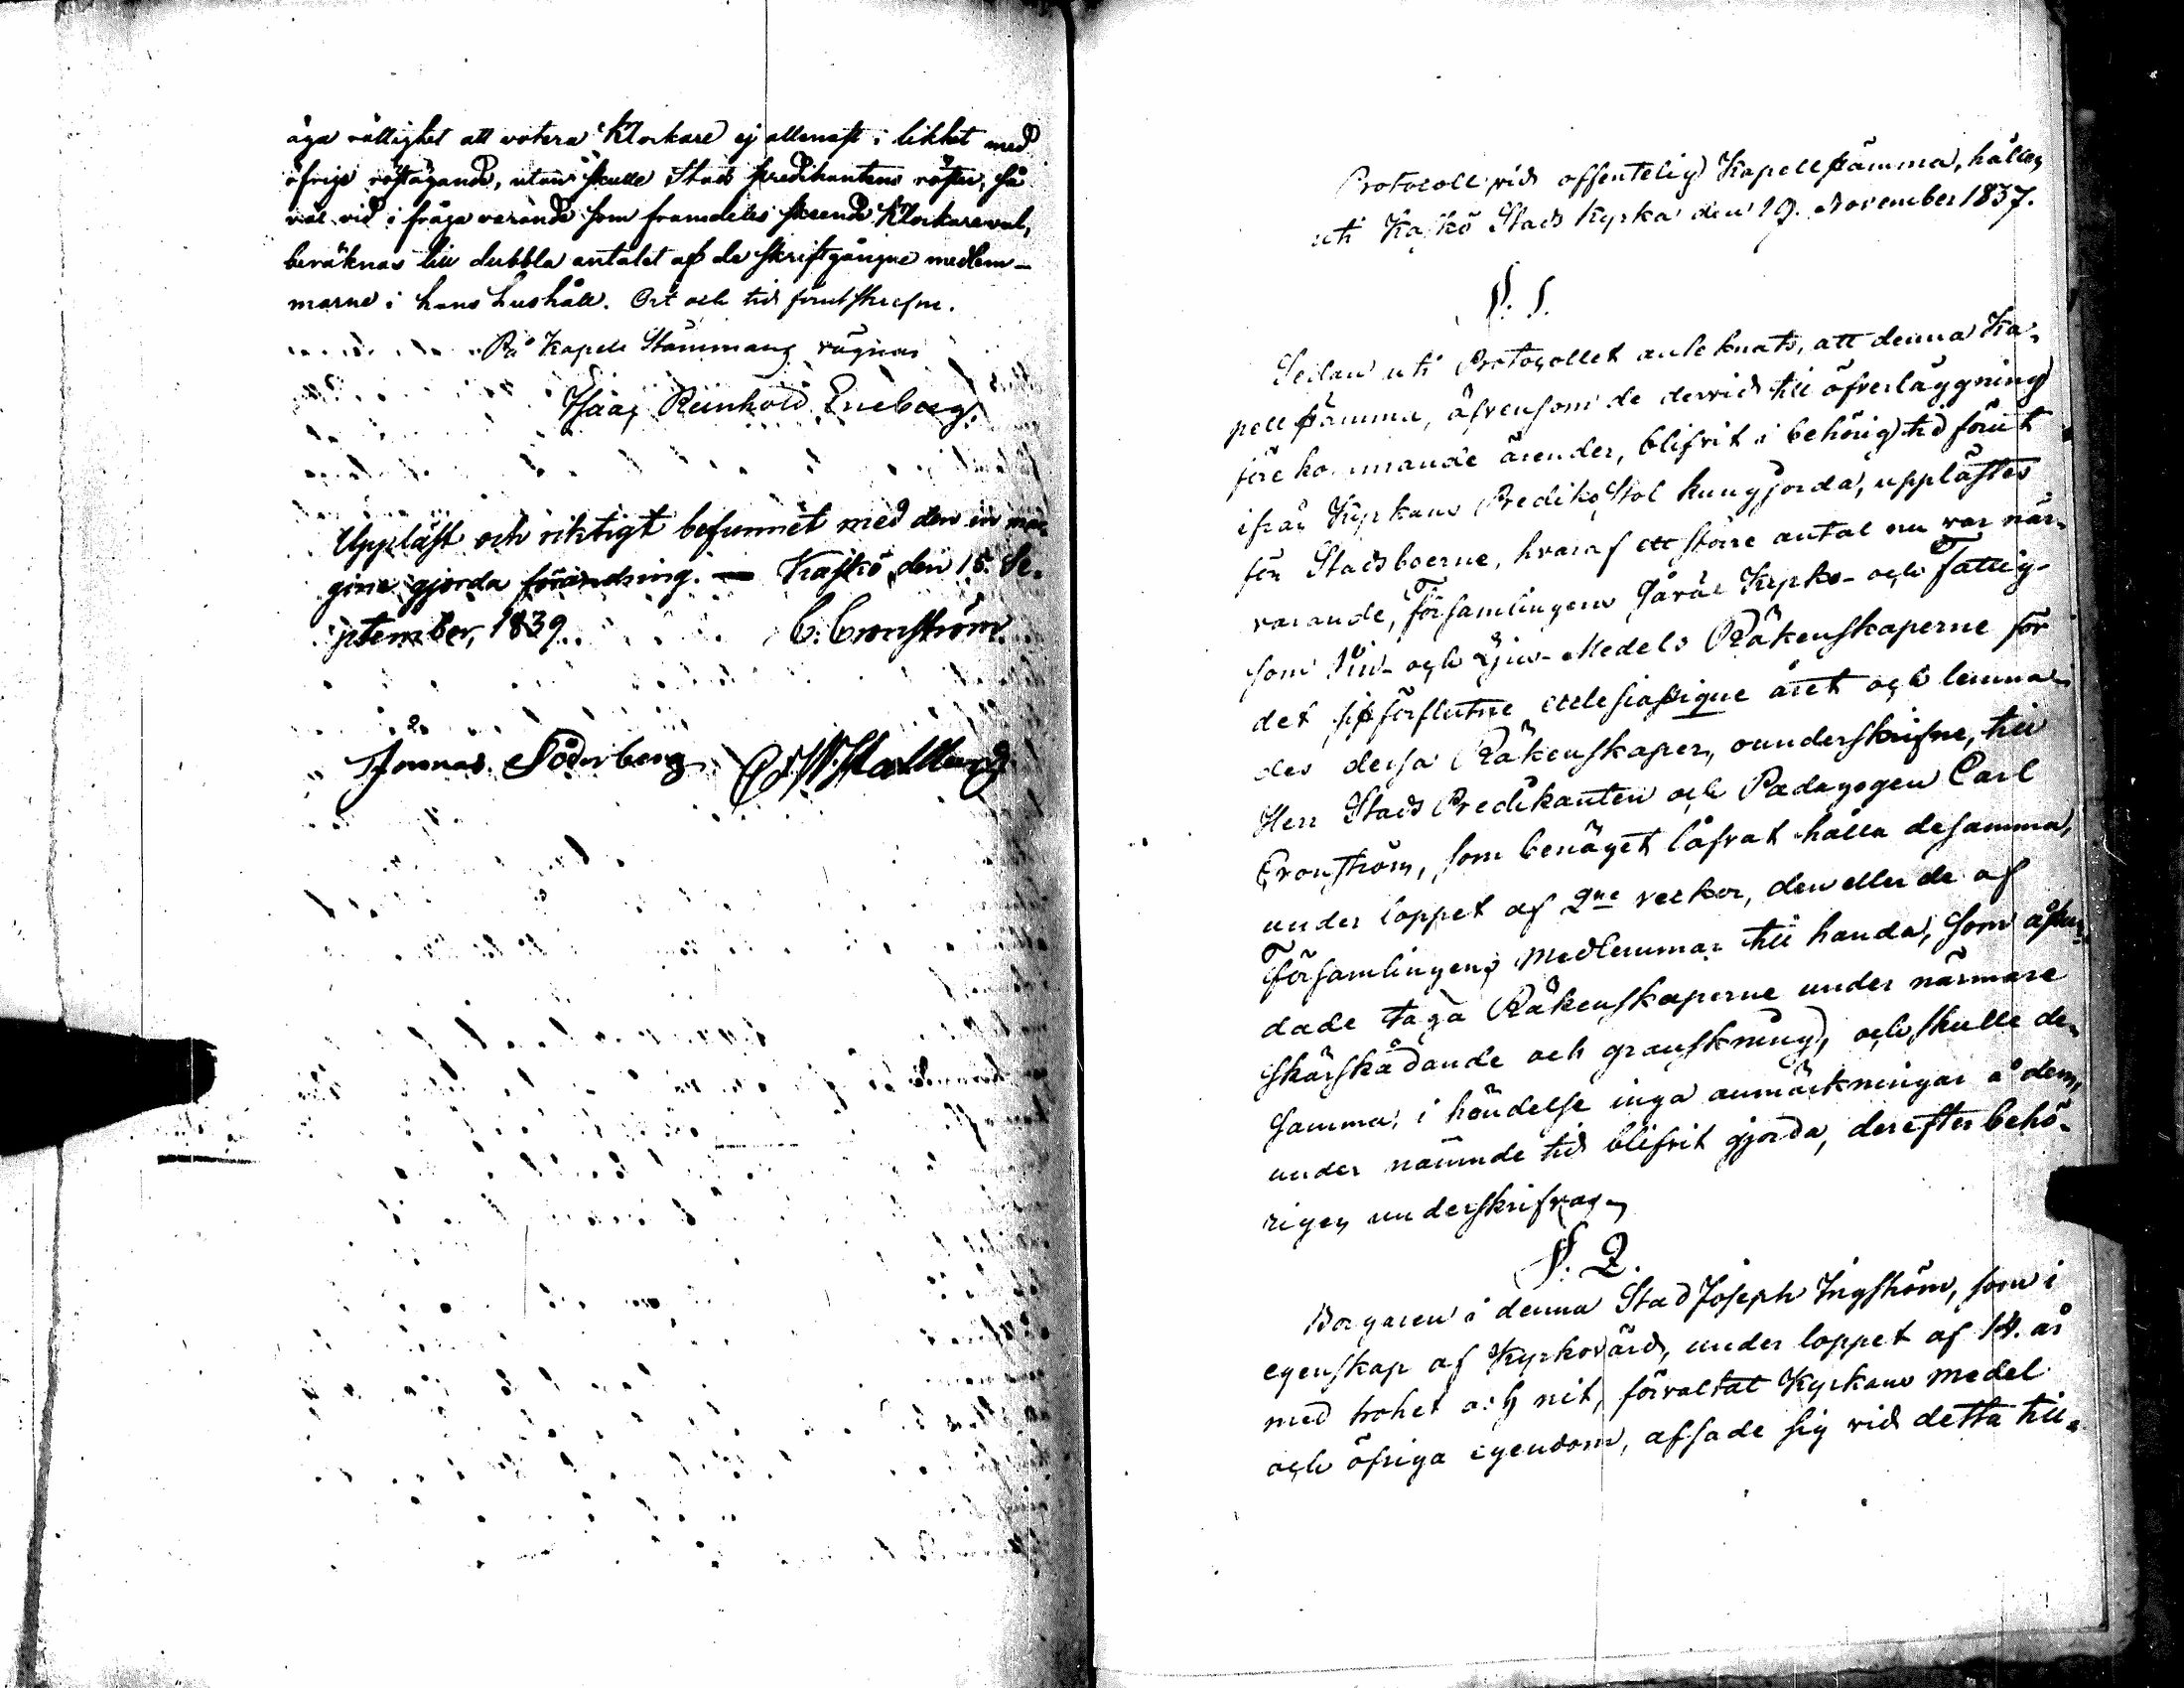 äga rättighet att votera Klockare ej allenast i likhet med
öfrige röstägande, utan skulle Stads Predikantens röster, så
väl vid i fråga varande som framdeles skeende Klockareval,
beräknas till dubbla antalet af de skriftgångne medlem-
marne i hans hushåll. Ort och tid förutskrefne.
På Kapell Stämmans vägnar
Isaac Reinhold Eneberg.
Uppläst och riktigt befunnet med den in mar-
gine gjorda förändring. — Kaskö den 15. Se-
ptember, 1839. C. Cronström.
Jonnas Söderberg
Protocoll vid offentelig Kapellstämma, hållen
uti Kaskö Stads Kyrka den 19. November 1837.
§. 1.
Sedan uti Protocollet antecknats, att denna Ka-
pellstämma, äfvensom de dervid till öfverläggning
förekommande ärender, blifvit i behörig tid förut
ifrån Kyrkans Prediko Stol kungjorda, upplästes
för Stadsboerne, hvaraf ett större antal nu var när-
varande, Församlingens såväl Kyrko- och Fattig-
som Vin- och Ljus-Medels Räkenskaperne för
det sistförflutne ecclesiastique året och lemna-
des dessa Räkenskaper, ounderskrifne, till
Herr Stads Predikanten och Pædagogen Carl
Cronström, som benäget låfvat hålla desamma,
under loppet af 2ne veckor, den eller de af
Församlingens medlemmar till handa, som åstun-
dade taga Räkenskaperne under närmare
skärskådande och granskning, och skulle de-
samma, i händelse inga anmärkningar å dem,
under nämnde tid blifvit gjorda, derefter behö-
rigen underskrifvas.
§. 2.
Borgaren i denna Stad Joseph Ingström, som i
egenskap af Kyrkovärd, under loppet af 14. år
med trohet och nit, förvaltat Kyrkans medel
och öfriga egendom, afsade sig vid detta till-